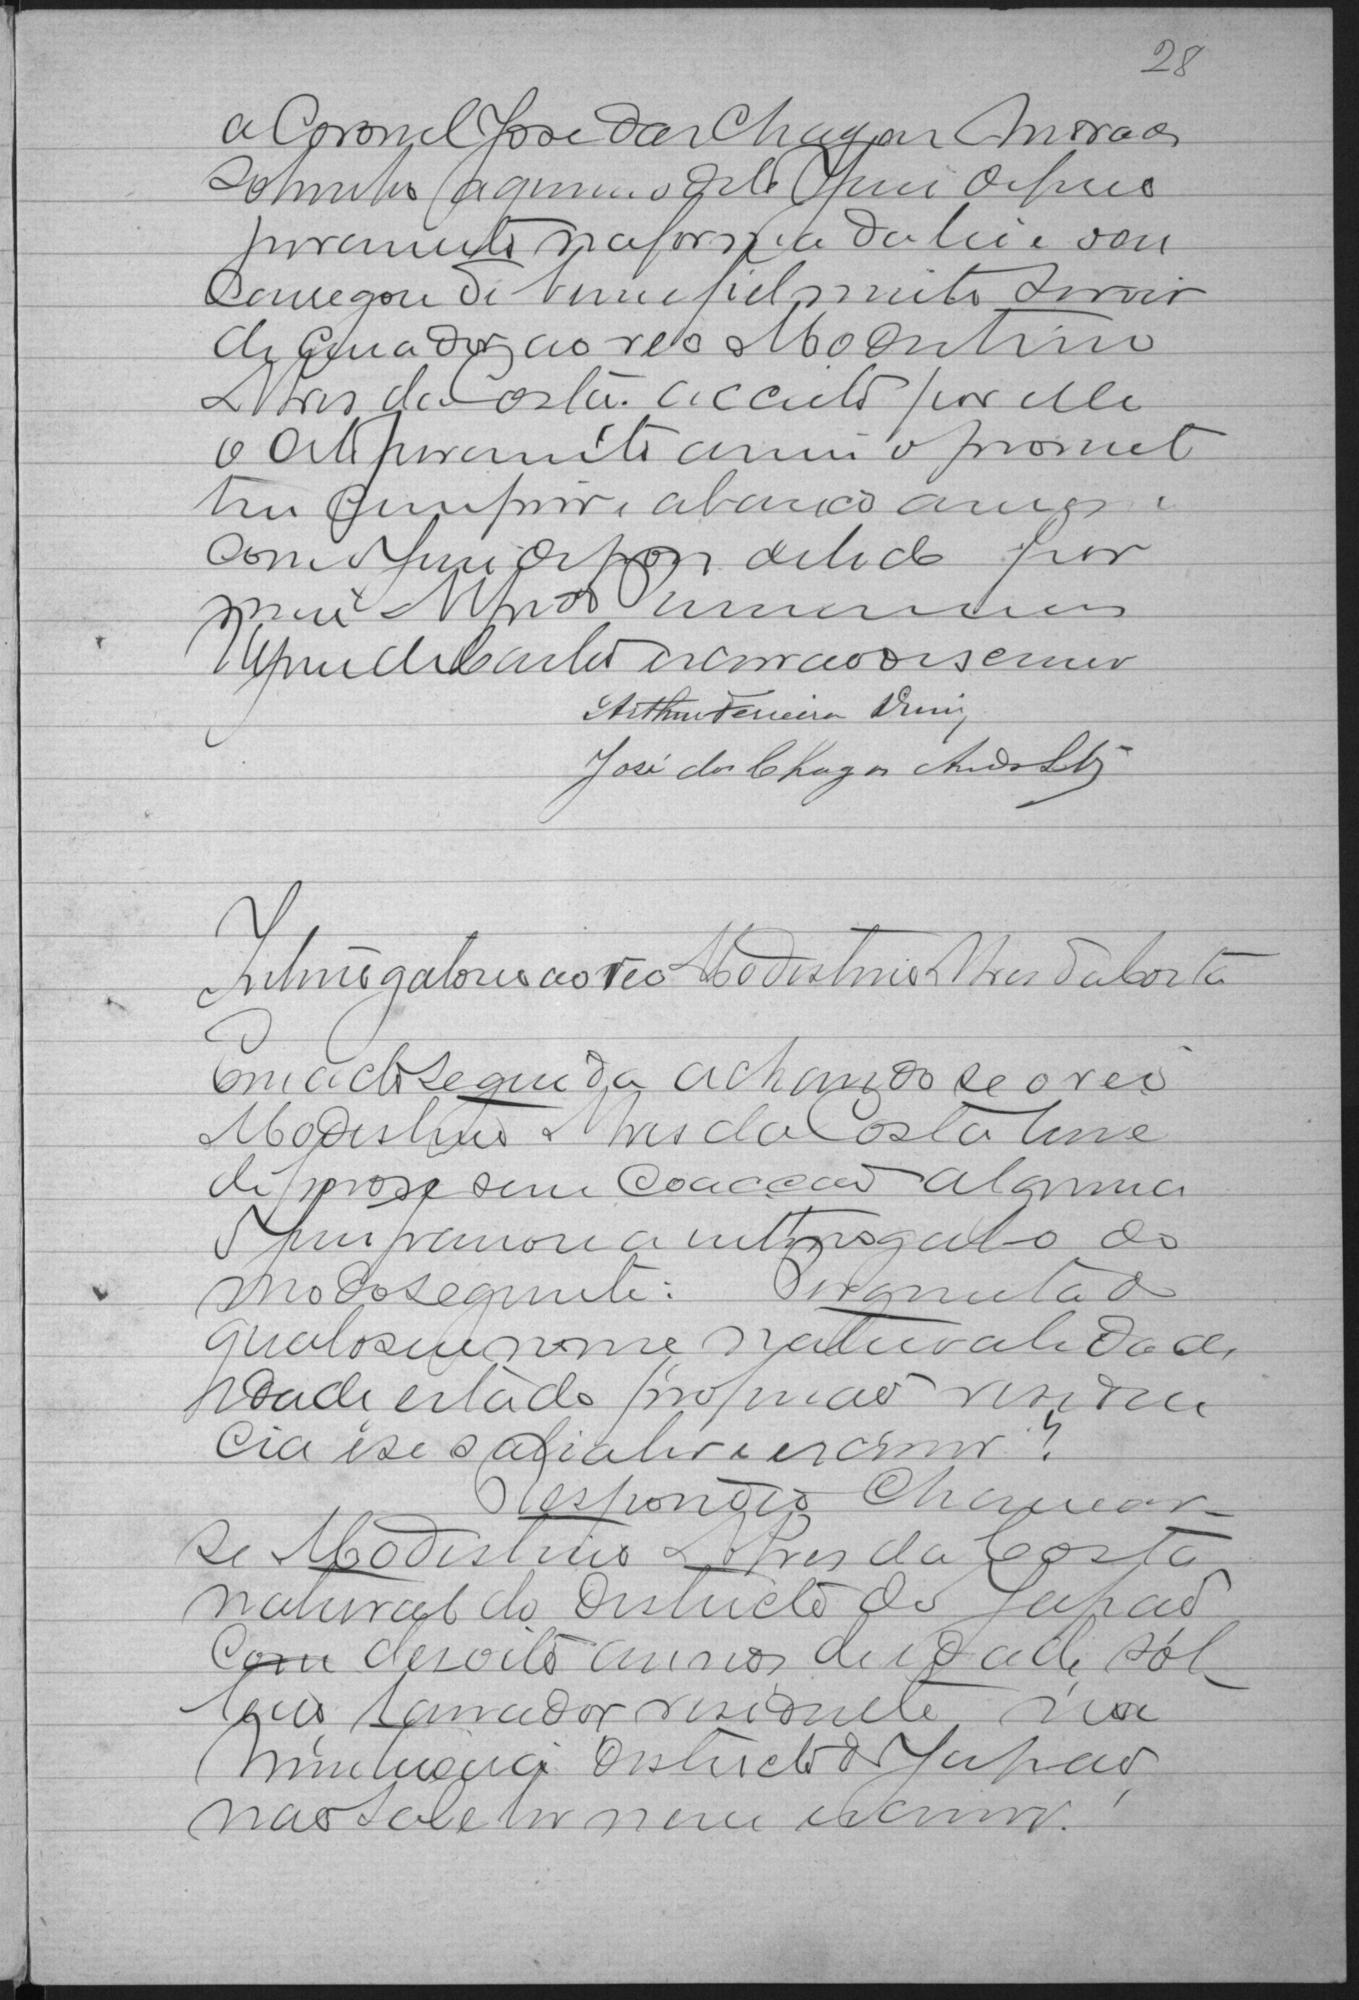 28
a Coronel José das Chagas Andrade
Sobrinho a quem o dito Juiz deferio
juramento na forma da lei e o en
carregou de bem e fielmente servir
de curador ao reo Modestino
Alves da Costa. Acceito por elle
o dito juramento assim o promet
teu cumprir e abaixo assigna
com o Juiz depois de lido por
mim Alfredo
de Castro escrivão o escrevi
Arthur Ferreira Diniz
José das Chagas Andr. Sbº
Interrogatorio ao reo Modestino Alves da Costa
Em acto seguida achando se o reo
Modestino Alves da Costa livre
de ferros e sem coacção alguma
o Juiz passou a interrogal-o do
modo seguinte: Perguntado
qual o seu nome naturalidade,
idade estado profissão residen
cia e se sabia ler e escrever?
Respondeo chamar-
se Modestino Alves da Costa
natural do Districto do Japão
com desoito annos de idade, sol-
teiro lavrador residente na
districto do Japão,
não sabe ler nem escrever.